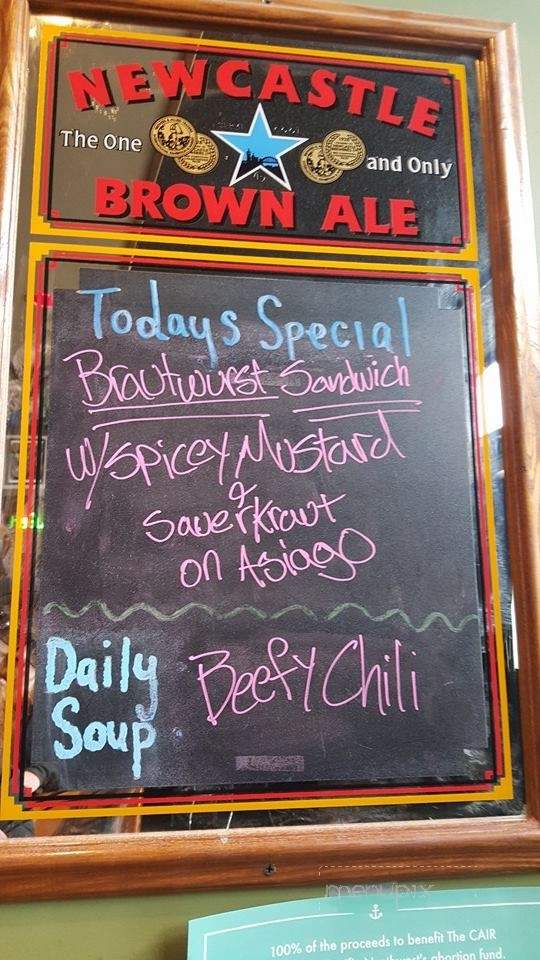 NEWCASTLE
The One
and Only
BROWN ALE
Todays Special
Brautwurst Sandwich
w/ Spicey Mustard
&
Sauerkraut
on Asiago
Daily Soup
Beefy Chili
menupix
100% of the proceeds to benefit The CAIR
Northwest's abortion fund.